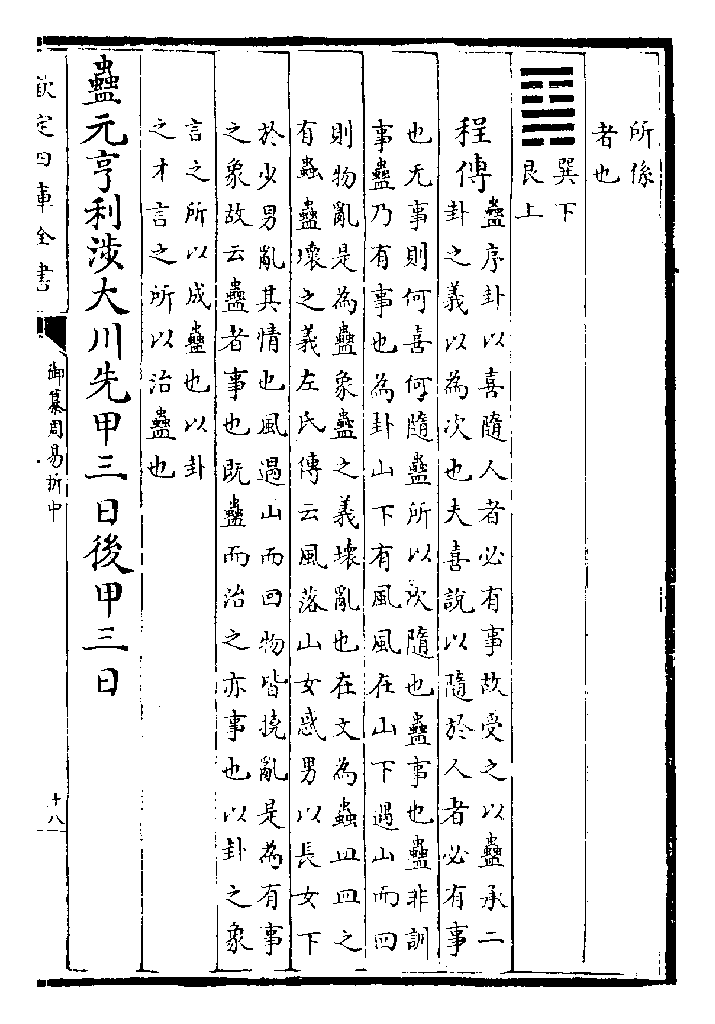 所係
者也
巽下
艮上
程傳
蠱序卦以喜隨人者必有事故受之以蠱承二
卦之義以為次也夫喜說以隨於人者必有事
也无事則何喜何隨蠱所以次隨也蠱事也蠱非訓
事蠱乃有事也為卦山下有風風在山下遇山而回
則物亂是為蠱象蠱之義壞亂也在文為蟲皿皿之
有蟲蠱壞之義左氏傳云風落山女惑男以長女下
於少男亂其情也風遇山而回物皆撓亂是為有事
之象故云蠱者事也既蠱而治之亦事也以卦之象
言之所以成蠱也以卦
之才言之所以治蠱也
蠱元亨利涉大川先甲三日後甲三日
欽定四庫全書
御纂周易折中
十八